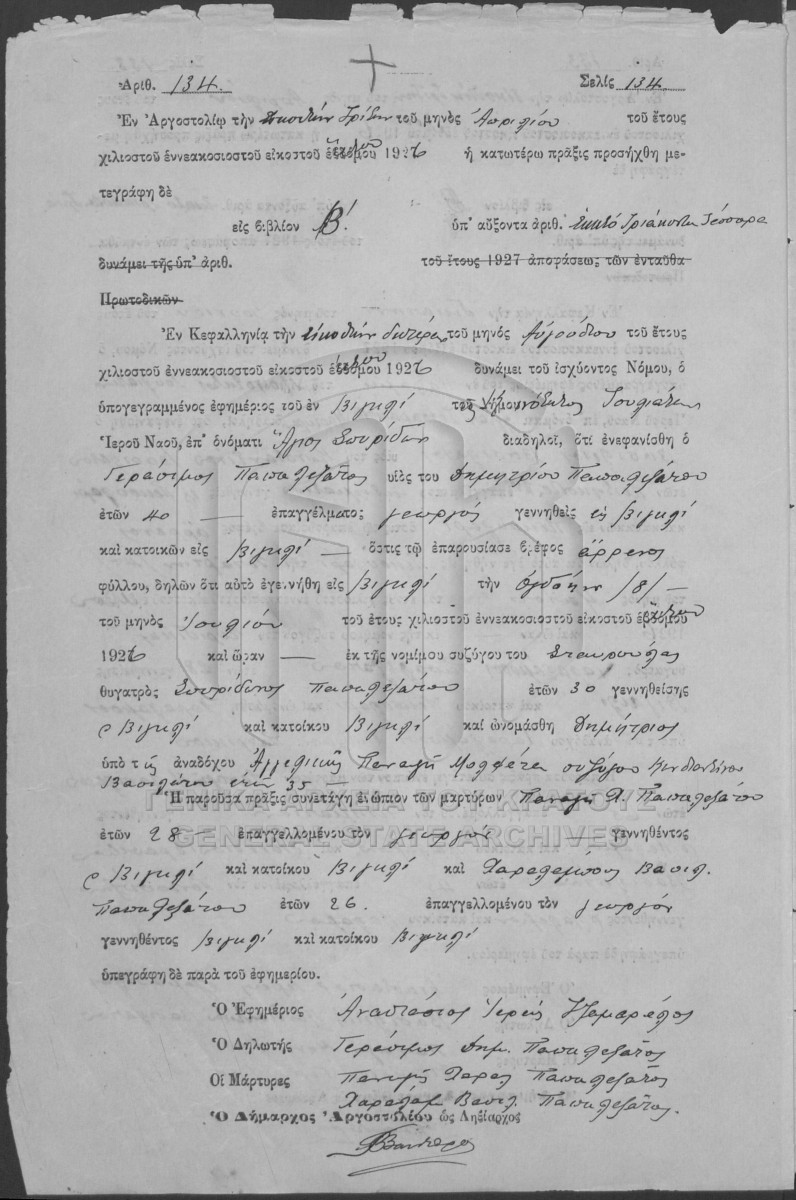 Ἀριθ. 134. Σελὶς 134.
Ἐν Ἀργοστολίῳ τὴν εἰκοστὴν τρίτην τοῦ μηνὸς Ἀπριλίου τοῦ ἔτους
χιλιοστοῦ ἐννεακοσιοστοῦ εἰκοστοῦ ἕκτου 1926 ἡ κατωτέρω πρᾶξις προσήχθη με-
τεγράφη δὲ
εἰς βιβλίον Β΄. ὑπ' αὔξοντα ἀριθ. ἑκατὸ τριάκοντα τέσσαρα
δυνάμει τῆς ὑπ' ἀριθ. τοῦ ἔτους 1927 ἀποφάσεως τῶν ἐνταῦθα
Πρωτοδικῶν
Ἐν Κεφαλληνίᾳ τὴν εἰκοστὴν δευτέραν τοῦ μηνὸς Αὐγούστου τοῦ ἔτους
χιλιοστοῦ ἐννεακοσιοστοῦ εἰκοστοῦ ἕκτου 1926 δυνάμει τοῦ ἰσχύοντος Νόμου, ὁ
ὑπογεγραμμένος ἐφημέριος τοῦ ἐν Βιγκλὶ τῆς Κοινότητος
Ἱεροῦ Ναοῦ, ἐπ' ὀνόματι Ἅγιος Σπυρίδων διαδηλοῖ, ὅτι ἐνεφανίσθη ὁ
Γεράσιμος Παπαλεξᾶτος υἱὸς του Δημητρίου Παπαλεξάτου
ἐτῶν 40 — ἐπαγγέλματος γεωργὸς γεννηθεὶς εἰς Βιγκλὶ
καὶ κατοικῶν εἰς Βιγκλὶ — ὅστις τῷ ἐπαρουσίασε βρέφος ἄρρενος
φύλλου, δηλῶν ὅτι αὐτὸ ἐγεννήθη εἰς Βιγκλὶ τὴν ὀγδόην /8/ —
τοῦ μηνὸς Ἰουλίου τοῦ ἔτους χιλιοστοῦ ἐννεακοσιοστοῦ εἰκοστοῦ ἕκτου
1926 καὶ ὥραν — ἐκ τῆς νομίμου συζύγου του Σταυρούλας
θυγατρὸς Σπυρίδωνος Παπαλεξάτου ἐτῶν 30 γεννηθείσης
Βιγκλὶ καὶ κατοίκου Βιγκλὶ καὶ ὠνομάσθη Δημήτριος
ὑπὸ τῆς ἀναδόχου Ἀγγελικῆς Παναγῆ Μολφέτα συζύγου Κωνσταντίνου
Βασιλάτου ἐτῶν 35 —
Ἡ παροῦσα πρᾶξις συνετάγη ἐνώπιον τῶν μαρτύρων Παναγῆ Χ. Παπαλεξάτου
ἐτῶν 28 — ἐπαγγελλομένου τὸν γεωργὸν γεννηθέντος
Βιγκλὶ καὶ κατοίκου Βιγκλὶ καὶ Χαραλάμπους Βασιλ.
Παπαλεξάτου ἐτῶν 26. ἐπαγγελλομένου τὸν γεωργὸν
γεννηθέντος Βιγκλὶ καὶ κατοίκου Βιγκλὶ
ὑπεγράφη δὲ παρὰ τοῦ ἐφημερίου.
Ὁ Ἐφημέριος Ἀναστάσιος Ἱερεὺς
Ὁ Δηλωτὴς Γεράσιμος Δημ. Παπαλεξᾶτος
Οἱ Μάρτυρες Παναγῆς Χαραλ. Παπαλεξᾶτος
Χαραλάμ. Βασιλ. Παπαλεξᾶτος.
Ὁ Δήμαρχος Ἀργοστολίου ὡς Ληξίαρχος
ΓΕΝΙΚΑ ΑΡΧΕΙΑ ΤΟΥ ΚΡΑΤΟΥΣ
GENERAL STATE ARCHIVES